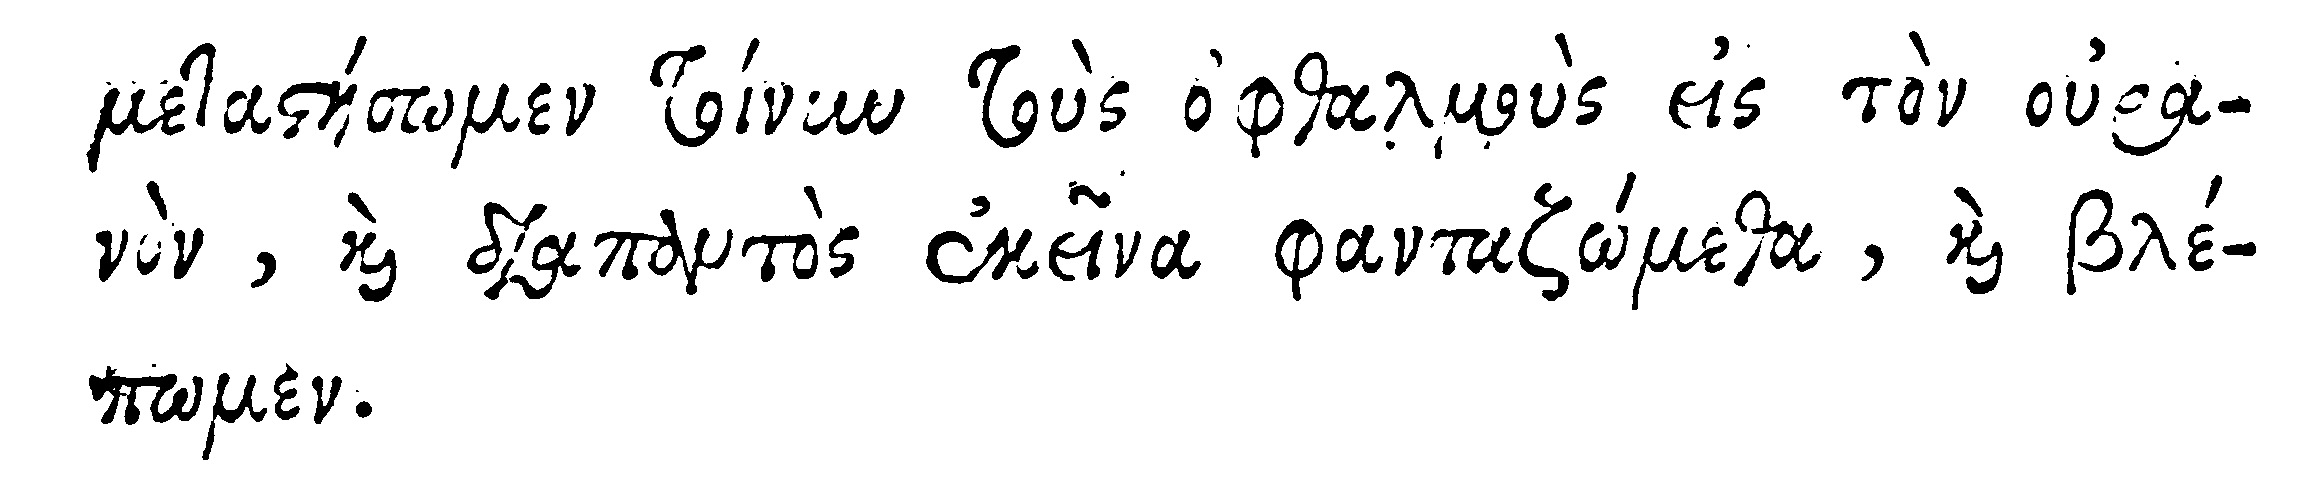 μεταστήσωμεν τοίνυν τοὺς ὀφθαλμοὺς εἰς τὸν οὐρα-
νὸν, καὶ διαπαντὸς ἐκεῖνα φανταζώμεθα, καὶ βλέ-
πωμεν.